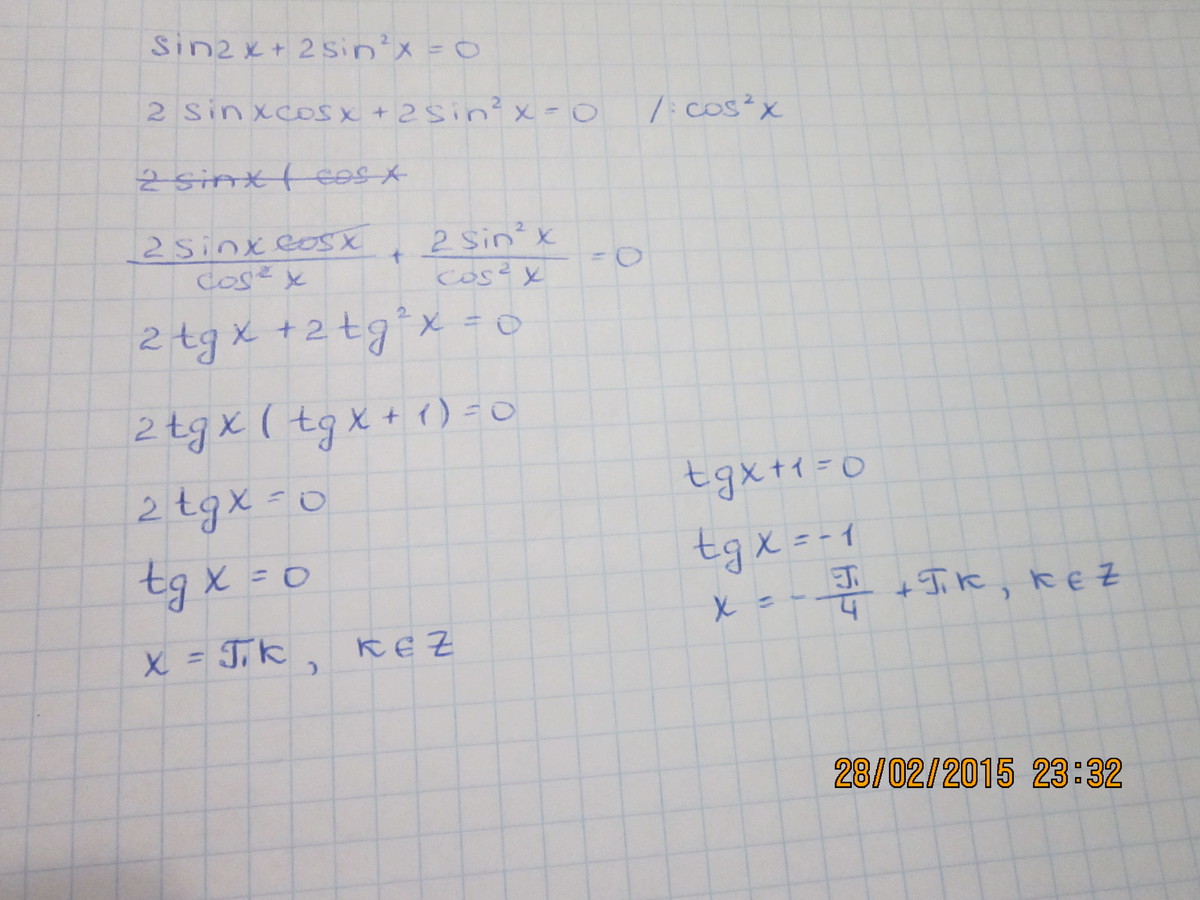 sin2x + 2sin²x = 0
2 sinxcosx + 2sin²x = 0 /: cos²x
2 sinx ( cos x
2sinxcosx/cos²x + 2sin²x/cos²x = 0
2tgx + 2tg²x = 0
2tgx ( tgx + 1) = 0
2tgx = 0
tgx = 0
x = πk, k∈Z
tgx+1=0
tgx = -1
x = -π/4 + πk, k∈Z
28/02/2015 23:32